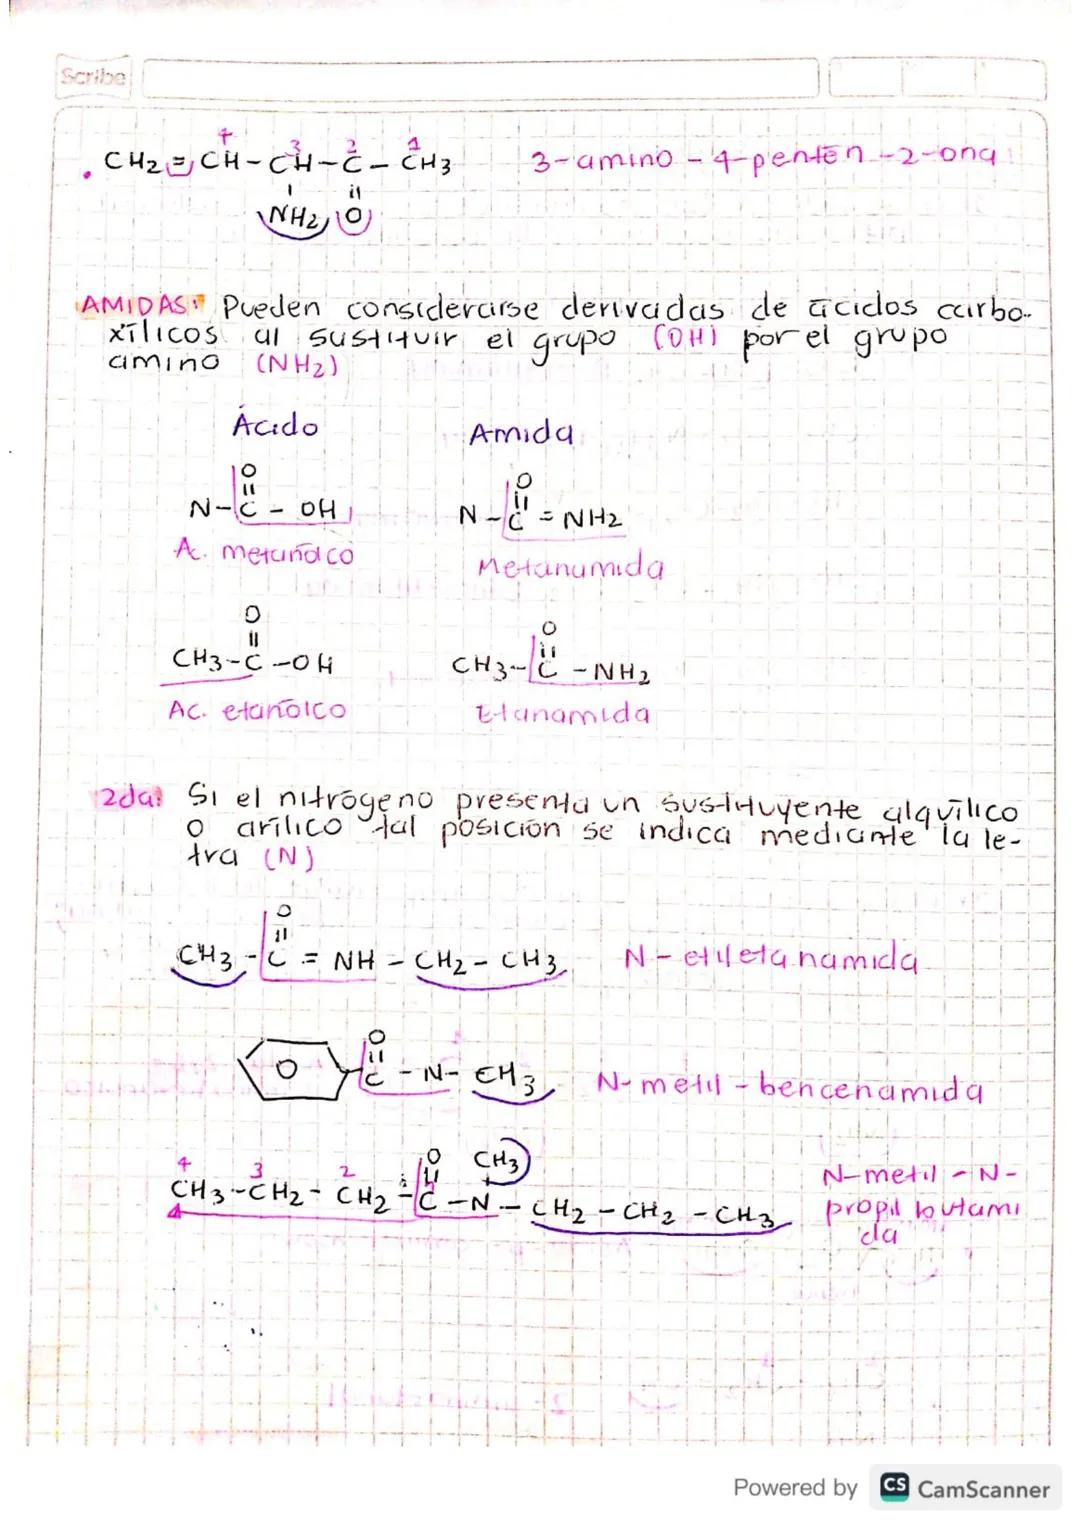 Scribe
4 3 2 1
CH2=CH-CH-C-CH3 3-amino-4-penten-2-ona
NH2 O
AMIDAS: Pueden considerarse derivadas de ácidos carbo-
xílicos al sustituir el grupo (OH) por el grupo
amino (NH2)
Ácido Amida
O O
N-C-OH N-C=NH2
Ac. metanoico Metanamida
O O
CH3-C-OH CH3-C-NH2
Ac. etanoico Etanamida
2da: Si el nitrógeno presenta un sustituyente alquílico
o arílico tal posición se indica mediante la le-
tra (N)
O
CH3-C=NH-CH2-CH3 N-etiletanamida
O
O C-N-CH3 N-metil-bencenamida
4 3 2 1 O CH3 N-metil-N-
CH3-CH2-CH2-C-N-CH2-CH2-CH3 propil butami
da
Powered by CS CamScanner